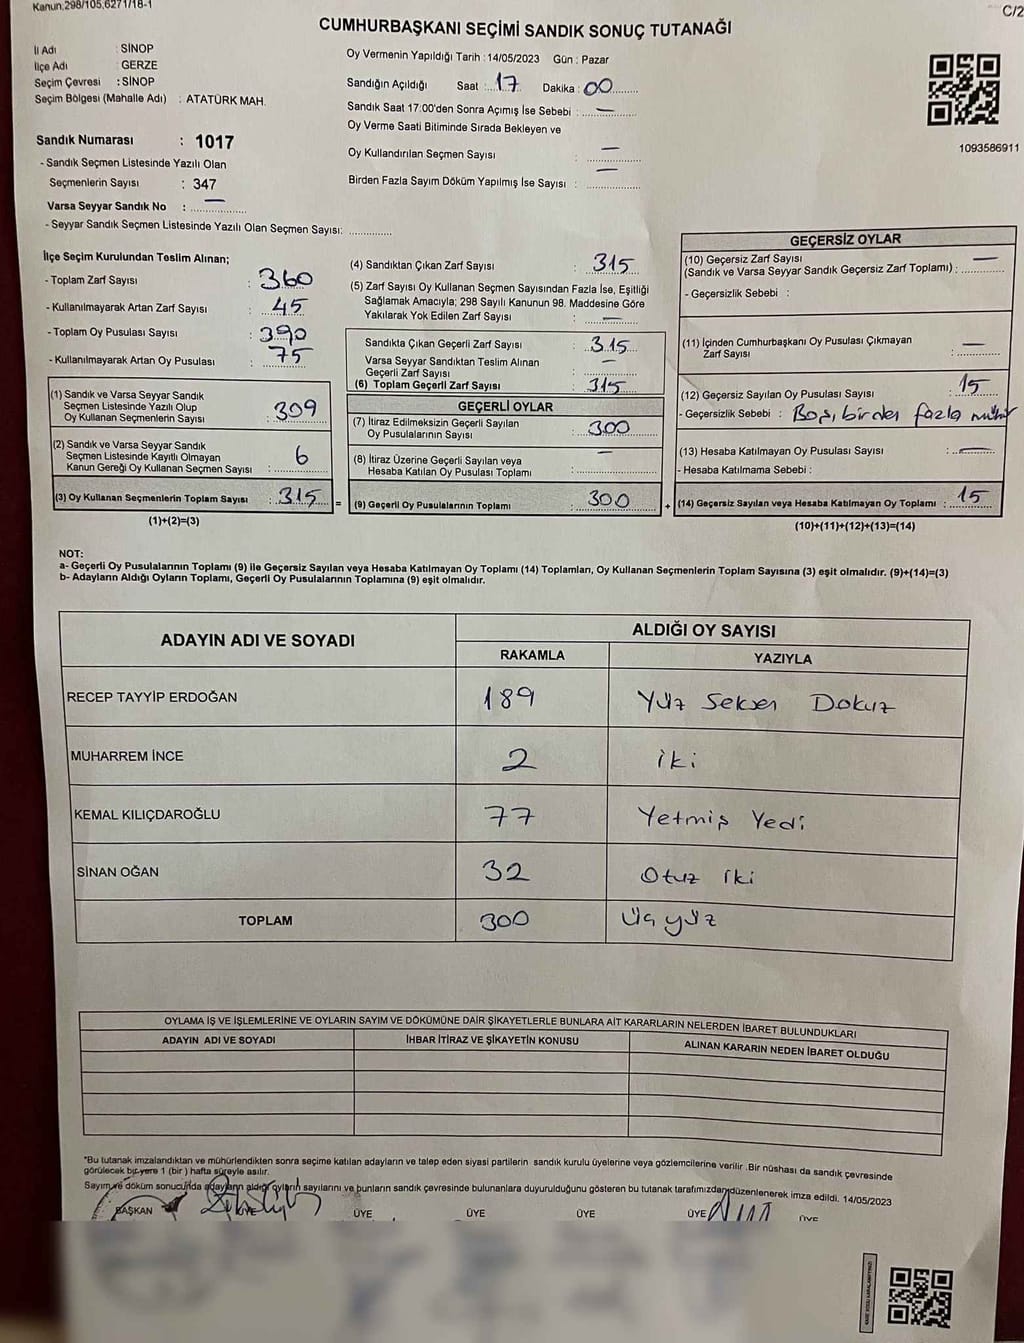 Kanun:298/105,6271/18-1
C/2
CUMHURBAŞKANI SEÇİMİ SANDIK SONUÇ TUTANAĞI
İl Adı : SİNOP
İlçe Adı : GERZE
Seçim Çevresi : SİNOP
Seçim Bölgesi (Mahalle Adı) : ATATÜRK MAH.
Oy Vermenin Yapıldığı Tarih : 14/05/2023 Gün : Pazar
Sandığın Açıldığı Saat : 17 Dakika : 00
Sandık Saat 17:00'den Sonra Açımış İse Sebebi : —
Oy Verme Saati Bitiminde Sırada Bekleyen ve
Oy Kullandırılan Seçmen Sayısı : —
Birden Fazla Sayım Döküm Yapılmış İse Sayısı : —
1093586911
Sandık Numarası : 1017
- Sandık Seçmen Listesinde Yazılı Olan
Seçmenlerin Sayısı : 347
Varsa Seyyar Sandık No : —
- Seyyar Sandık Seçmen Listesinde Yazılı Olan Seçmen Sayısı: ..............
İlçe Seçim Kurulundan Teslim Alınan;
- Toplam Zarf Sayısı : 360
- Kullanılmayarak Artan Zarf Sayısı : 45
- Toplam Oy Pusulası Sayısı : 390
- Kullanılmayarak Artan Oy Pusulası : 75
(1) Sandık ve Varsa Seyyar Sandık
Seçmen Listesinde Yazılı Olup
Oy Kullanan Seçmenlerin Sayısı : 309
(2) Sandık ve Varsa Seyyar Sandık
Seçmen Listesinde Kayıtlı Olmayan
Kanun Gereği Oy Kullanan Seçmen Sayısı : 6
(3) Oy Kullanan Seçmenlerin Toplam Sayısı : 315 =
(1)+(2)=(3)
(4) Sandıktan Çıkan Zarf Sayısı : 315
(5) Zarf Sayısı Oy Kullanan Seçmen Sayısından Fazla İse, Eşitliği
Sağlamak Amacıyla; 298 Sayılı Kanunun 98. Maddesine Göre
Yakılarak Yok Edilen Zarf Sayısı : —
Sandıkta Çıkan Geçerli Zarf Sayısı : 315
Varsa Seyyar Sandıktan Teslim Alınan
Geçerli Zarf Sayısı : —
(6) Toplam Geçerli Zarf Sayısı : 315
GEÇERLİ OYLAR
(7) İtiraz Edilmeksizin Geçerli Sayılan
Oy Pusulalarının Sayısı : 300
(8) İtiraz Üzerine Geçerli Sayılan veya
Hesaba Katılan Oy Pusulası Toplamı : —
(9) Geçerli Oy Pusulalarının Toplamı : 300 +
GEÇERSİZ OYLAR
(10) Geçersiz Zarf Sayısı
(Sandık ve Varsa Seyyar Sandık Geçersiz Zarf Toplamı) : —
- Geçersizlik Sebebi :
(11) İçinden Cumhurbaşkanı Oy Pusulası Çıkmayan
Zarf Sayısı : —
(12) Geçersiz Sayılan Oy Pusulası Sayısı : 15
- Geçersizlik Sebebi : Boş, birden fazla mühür
(13) Hesaba Katılmayan Oy Pusulası Sayısı : —
- Hesaba Katılmama Sebebi :
(14) Geçersiz Sayılan veya Hesaba Katılmayan Oy Toplamı : 15
(10)+(11)+(12)+(13)=(14)
NOT:
a- Geçerli Oy Pusulalarının Toplamı (9) ile Geçersiz Sayılan veya Hesaba Katılmayan Oy Toplamı (14) Toplamları, Oy Kullanan Seçmenlerin Toplam Sayısına (3) eşit olmalıdır. (9)+(14)=(3)
b- Adayların Aldığı Oyların Toplamı, Geçerli Oy Pusulalarının Toplamına (9) eşit olmalıdır.
ADAYIN ADI VE SOYADI
ALDIĞI OY SAYISI
RAKAMLA YAZIYLA
RECEP TAYYİP ERDOĞAN 189 Yüz Seksen Dokuz
MUHARREM İNCE 2 iki
KEMAL KILIÇDAROĞLU 77 Yetmiş Yedi
SİNAN OĞAN 32 Otuz iki
TOPLAM 300 Üç yüz
OYLAMA İŞ VE İŞLEMLERİNE VE OYLARIN SAYIM VE DÖKÜMÜNE DAİR ŞİKAYETLERLE BUNLARA AİT KARARLARIN NELERDEN İBARET BULUNDUKLARI
ADAYIN ADI VE SOYADI İHBAR İTİRAZ VE ŞİKAYETİN KONUSU ALINAN KARARIN NEDEN İBARET OLDUĞU
*Bu tutanak imzalandıktan ve mühürlendikten sonra seçime katılan adayların ve talep eden siyasi partilerin sandık kurulu üyelerine veya gözlemcilerine verilir .Bir nüshası da sandık çevresinde
görülecek bir yere 1 (bir ) hafta süreyle asılır.
Sayım ve döküm sonucunda adayların aldığı oyların sayılarını ve bunların sandık çevresinde bulunanlara duyurulduğunu gösteren bu tutanak tarafımızdan düzenlenerek imza edildi. 14/05/2023
BAŞKAN ÜYE ÜYE ÜYE ÜYE ÜYE ÜYE